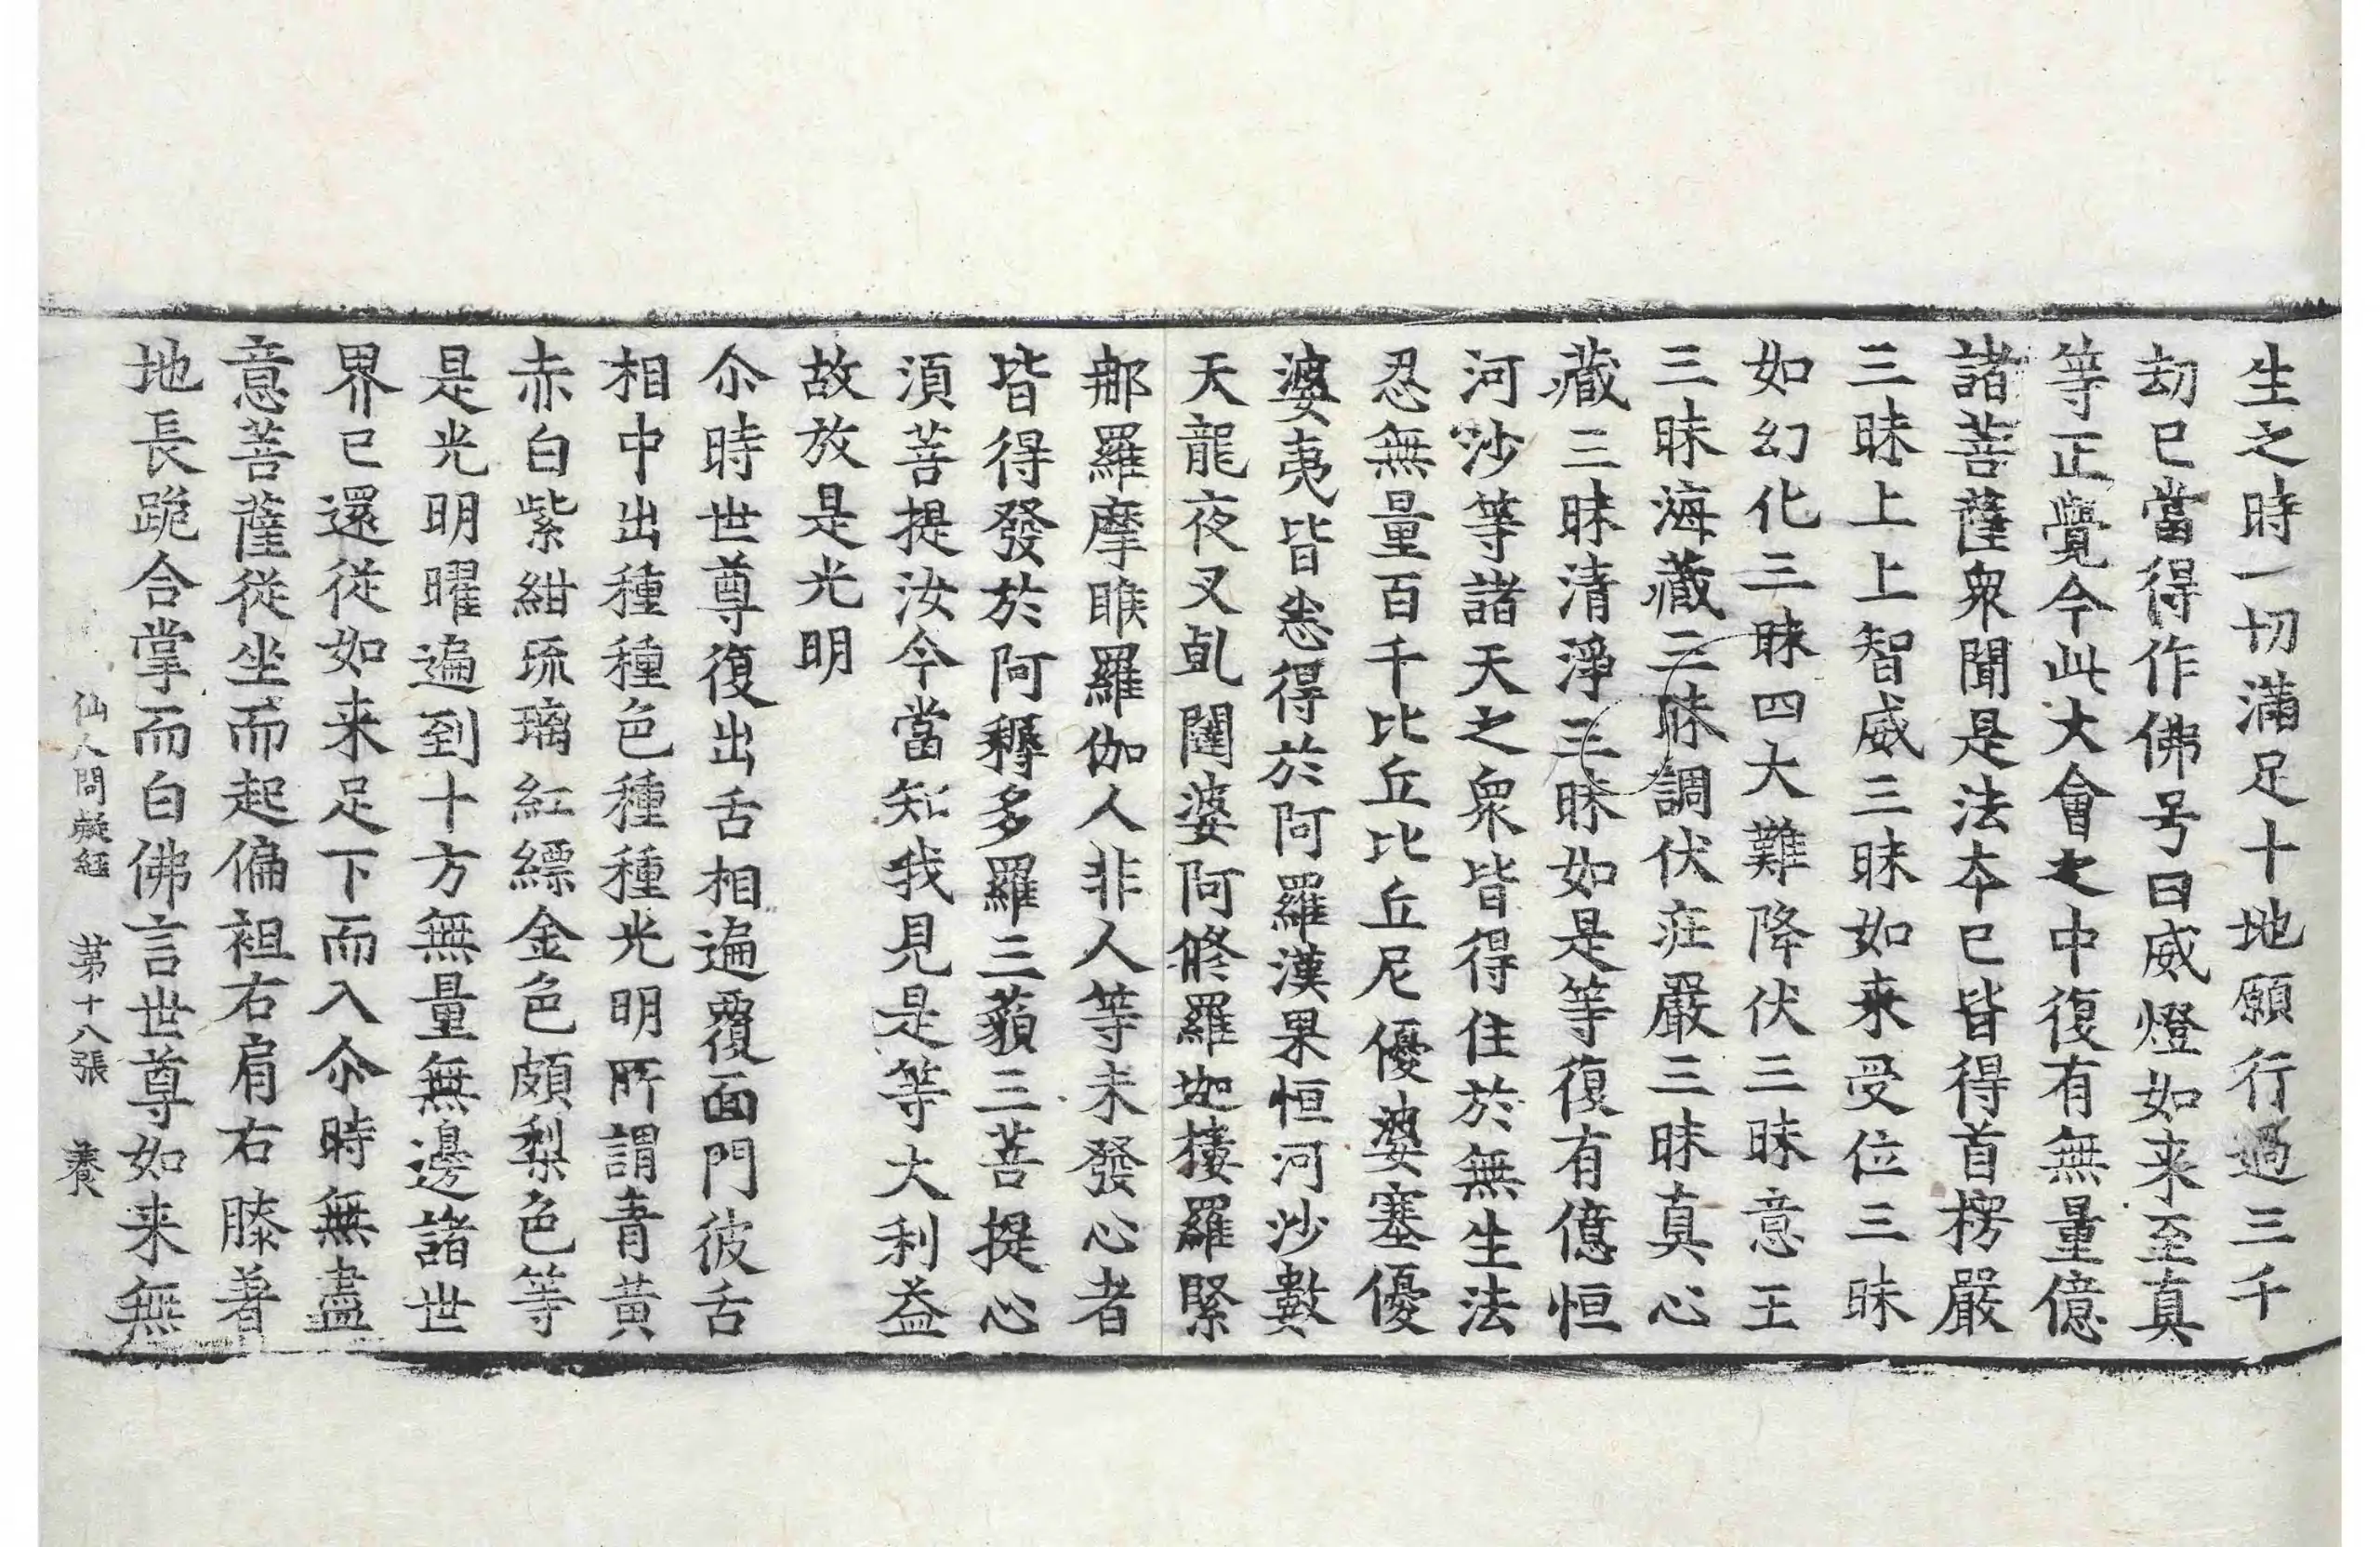 生之時一切滿足十地願行過三千
劫已當得作佛号曰威燈如来至真
等正覺今此大會之中復有無量億
諸菩薩衆聞是法夲已皆得首楞嚴
三昧上上智威三昧如来受位三昧
如幻化三昧四大難降伏三昧意王
三昧海藏三昧調伏莊嚴三昧真心
藏三昧清淨三昧如是等復有億恒
河沙等諸天之衆皆得住於無生法
忍無量百千比丘比丘尼優婆塞優
婆夷皆悉得於阿羅漢果恒河沙數
天龍夜叉乹闥婆阿脩羅迦樓羅緊
那羅摩睺羅伽人非人等未發心者
皆得發於阿耨多羅三藐三菩提心
須菩提汝今當知我見是等大利益
故放是光明
尒時世尊復出舌相遍覆面門彼舌
相中出種種色種種光明所謂青黃
赤白紫紺琉璃紅縹金色頗梨色等
是光明曜遍到十方無量無邊諸世
界已還從如来足下而入尒時無盡
意菩薩從坐而起偏袒右肩右膝著
地長跪合掌而白佛言世尊如来無
仙人問疑經 苐十八張 養